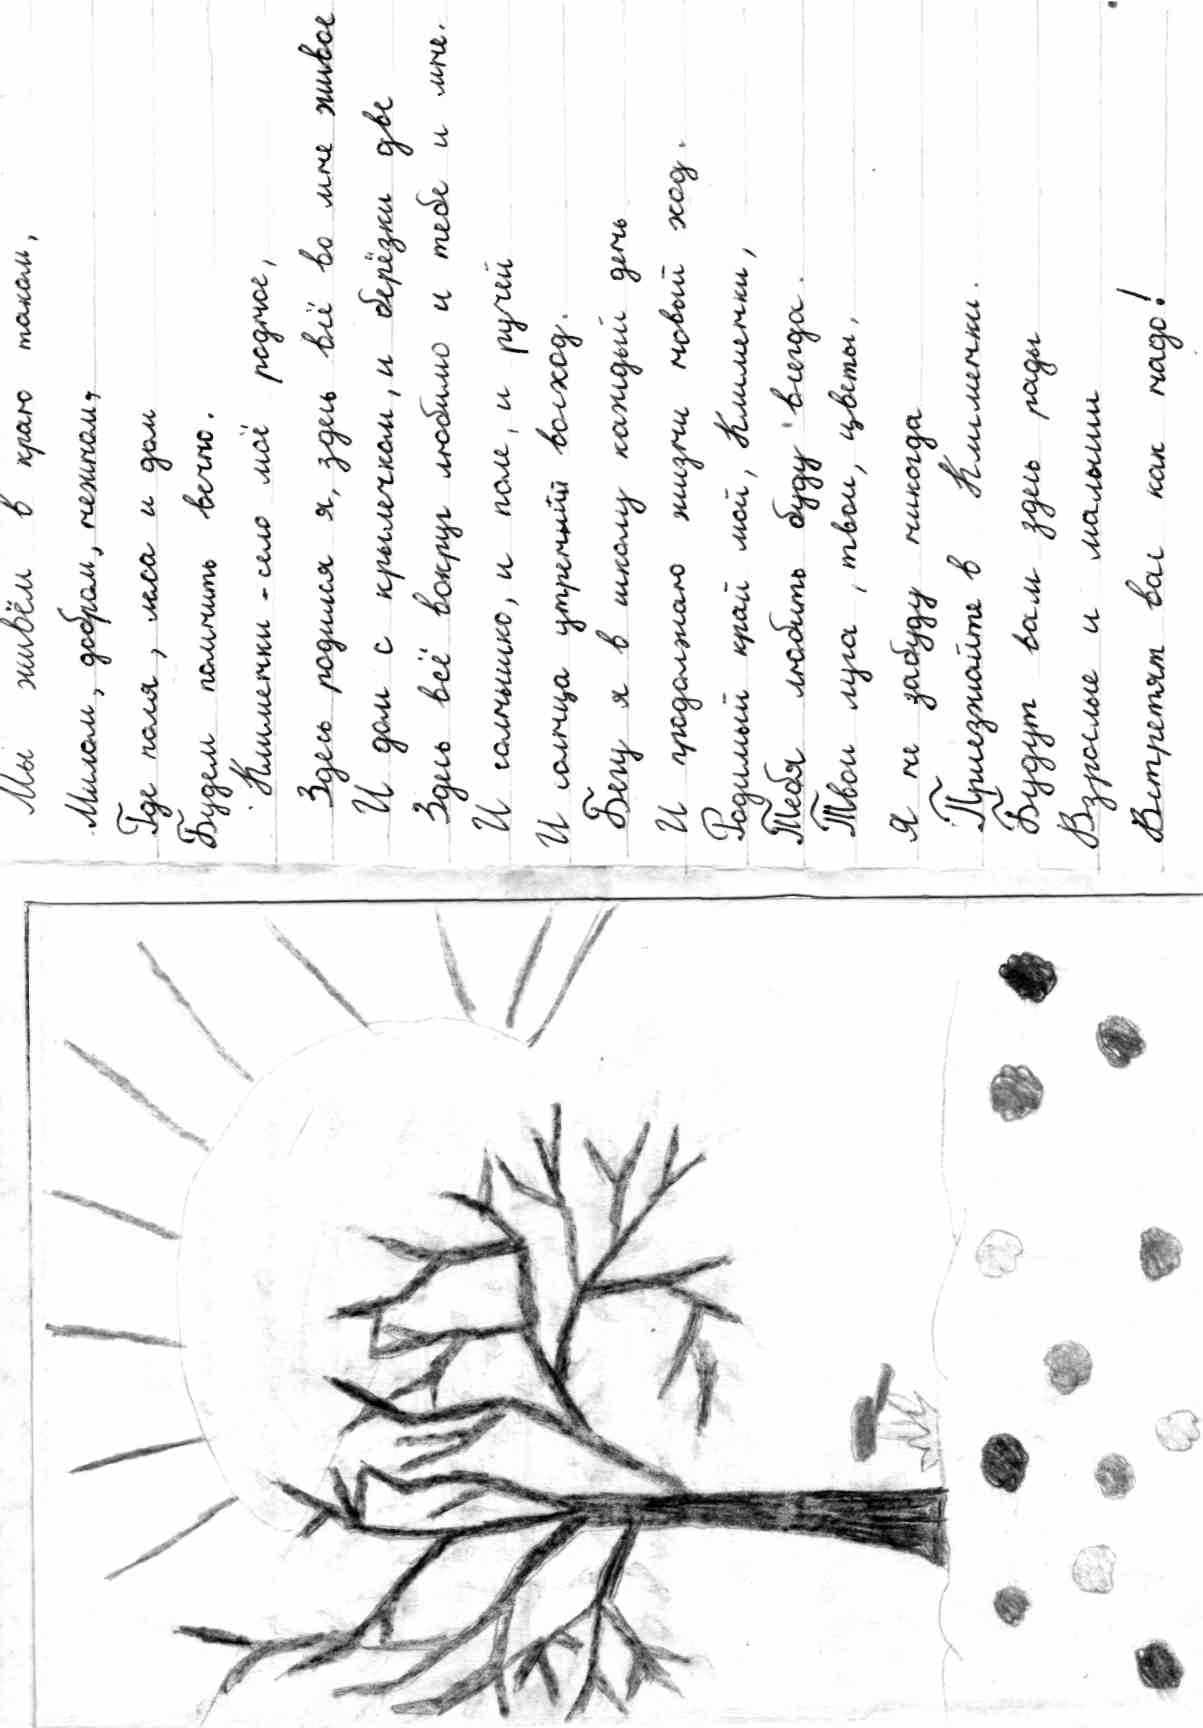 Мы живём в краю таком,
Милом, добром, нежном,
Где поля, леса и дом
Будем помнить вечно.
Климентки - село моё родное,
Здесь родился я, здесь всё во мне живое
И дом с крылечком, и берёзки две
Здесь всё вокруг любимо и тебе и мне.
И солнышко, и поле, и ручей
И солнца утренний восход.
Бегу я в школу каждый день
И продолжаю жизни новый ход.
Родимый край мой, Клименки,
Тебя любить буду всегда.
Твои луга, твои, цветы,
Я не забуду никогда
Приезжайте в Клименки.
Будут вам здесь рады
Взрослые и малыши
Встретят вас как надо!